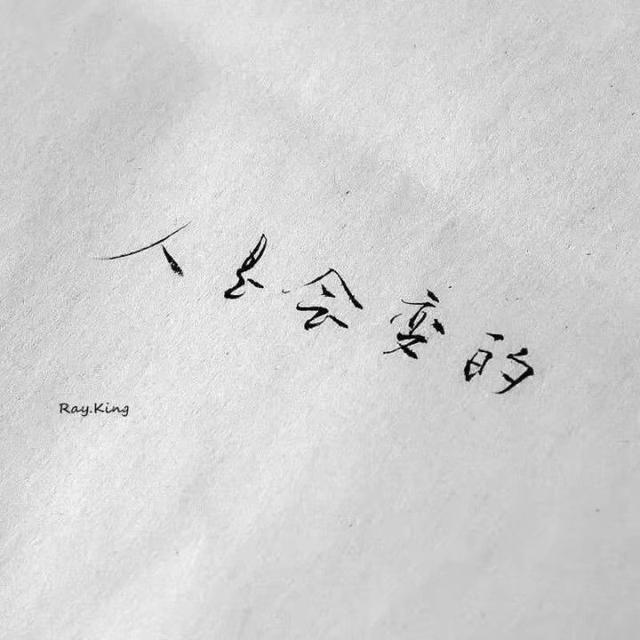 人是会变的
Ray.King